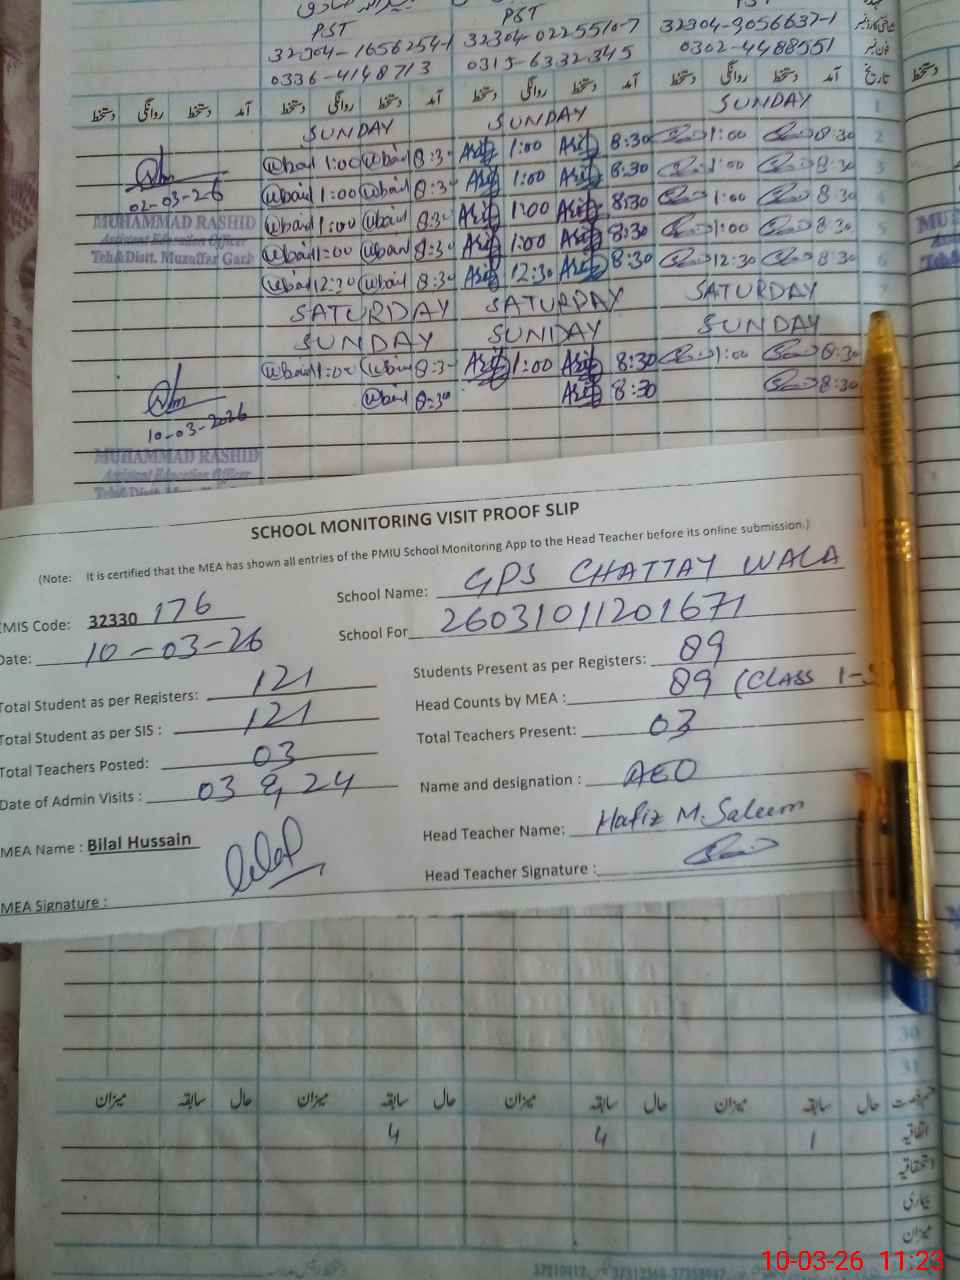 PST PST
32304-1656254-1 32304-0225510-7 32304-3056637-1
0336-4148713 0315-6332345 0302-4488551
دستخط روانگی دستخط آمد دستخط روانگی دستخط آمد دستخط روانگی دستخط آمد دستخط روانگی دستخط آمد تاریخ
SUNDAY SUNDAY SUNDAY 1
Ubaid 1:00 Ubaid 8:30 Asif 1:00 Asif 8:30 1:00 8:30 2
Ubaid 1:00 Ubaid 8:30 Asif 1:00 Asif 8:30 1:00 8:30 3
02-03-26
Ubaid 1:00 Ubaid 8:30 Asif 1:00 Asif 8:30 1:00 8:30 4
MUHAMMAD RASHID
Ubaid 1:00 Ubaid 8:30 Asif 1:00 Asif 8:30 1:00 8:30 5
Assistant Education Officer
Teh&Distt. Muzaffar Garh
Ubaid 12:30 Ubaid 8:30 Asif 12:30 Asif 8:30 12:30 8:30 6
SATURDAY SATURDAY SATURDAY 7
SUNDAY SUNDAY SUNDAY
Ubaid 1:00 Ubaid 8:30 Asif 1:00 Asif 8:30 1:00 8:30
Ubaid 8:30 Asif 8:30 8:30
10-03-2026
MUHAMMAD RASHID
Assistant Education Officer
Teh&Distt.
SCHOOL MONITORING VISIT PROOF SLIP
(Note: It is certified that the MEA has shown all entries of the PMIU School Monitoring App to the Head Teacher before its online submission.)
EMIS Code: 32330 176 School Name: GPS CHATTAY WALA
Date: 10-03-26 School For 26031011201671
Total Student as per Registers: 121 Students Present as per Registers: 89
Total Student as per SIS : 121 Head Counts by MEA : 89 (CLASS 1-5
Total Teachers Posted: 03 Total Teachers Present: 03
Date of Admin Visits : 03 & 24 Name and designation : AEO
MEA Name : Bilal Hussain Head Teacher Name: Hafiz M. Saleem
MEA Signature : Head Teacher Signature :
30
31
میزان سابقہ حال میزان سابقہ حال میزان سابقہ حال میزان سابقہ حال قسم رخصت
4 4 1 اتفاقیہ
استحقاقیہ
بیماری
میزان
10-03-26 11:23